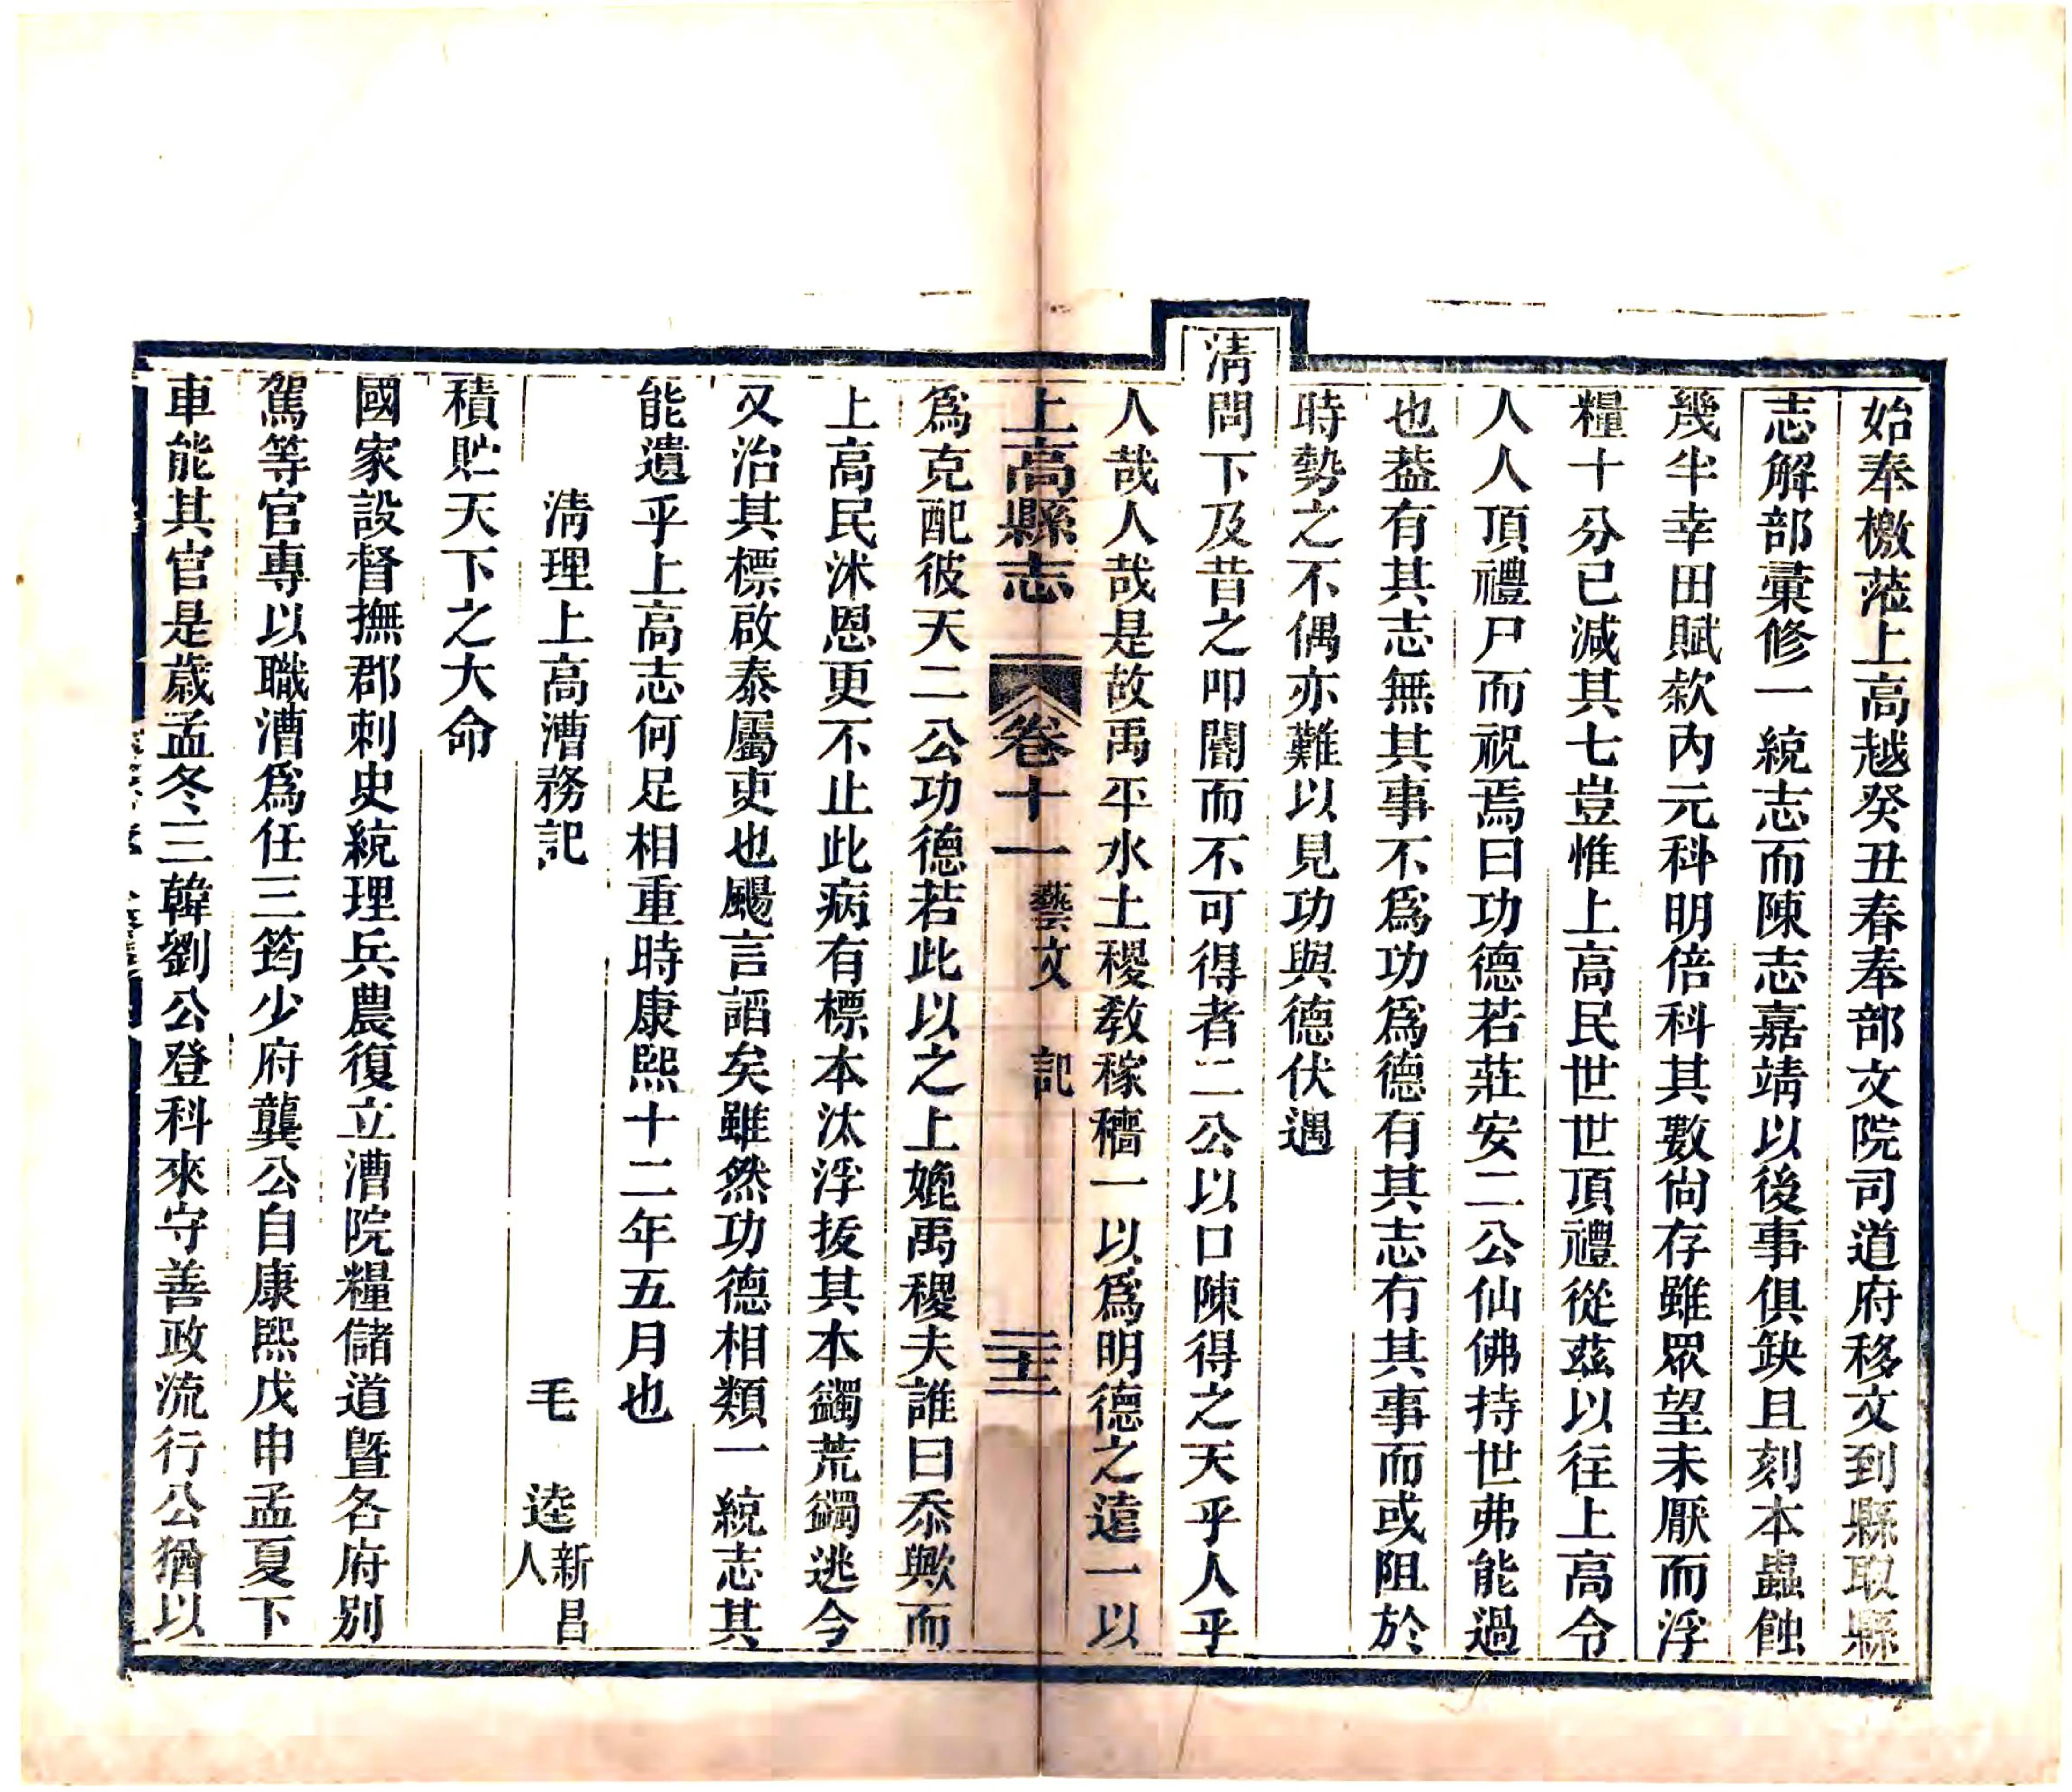 始奉檄蒞上高越癸丑春奉部文院司道府移文到縣取縣
志解部彙修一統志而陳志嘉靖以後事俱缺且刻本蟲蝕
幾半幸田賦欵內元科明倍科其數尙存雖眾望未厭而浮
糧十分已減其七豈惟上高民世世頂禮從茲以往上高令
人人頂禮尸而祝焉曰功德若莊安二公仙佛持世弗能過
也葢有其志無其事不爲功爲德有其志有其事而或阻於
時勢之不偶亦難以見功與德伏遇
淸問下及昔之叩閽而不可得者二公以口陳得之天乎人乎
人哉人哉是故禹平水土稷敎稼穡一以爲明德之遠一以
上高縣志 卷十一 藝文 記 二十三
爲克配彼天二公功德若此以之上媲禹稷夫誰曰忝歟而
上高民沭恩更不止此病有標本汰浮拔其本蠲荒蠲逃今
又治其標啟泰屬吏也颺言謟矣雖然功德相類一統志其
能遺乎上高志何足相重時康熙十二年五月也
淸理上高漕務記 毛逵 新昌人
積貯天下之大命
國家設督撫郡刺史統理兵農復立漕院糧儲道曁各府別
駕等官專以職漕爲任三筠少府龔公自康熙戊申孟夏下
車能其官是歲孟冬三韓劉公登科來守善政流行公猶以